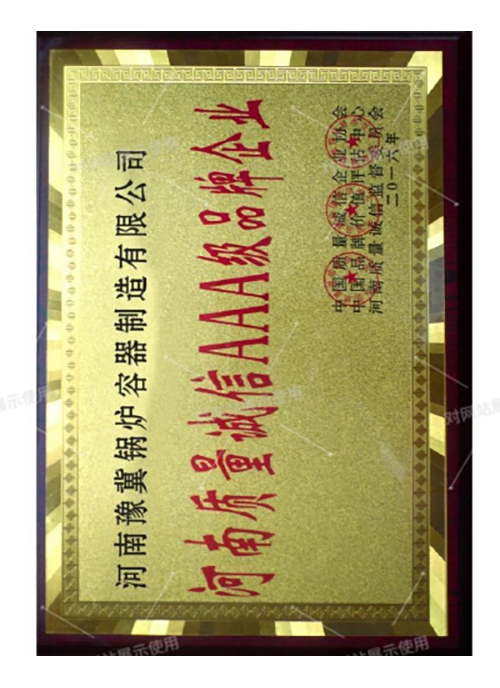 河南豫冀锅炉容器制造有限公司
河南质量诚信AAA级品牌企业
中国质量诚信企业协会
中国品牌价值评估中心
河南质量诚信监督委员会
二〇一六年
对网站展
展示使用
站展示使用
对网站展示使用